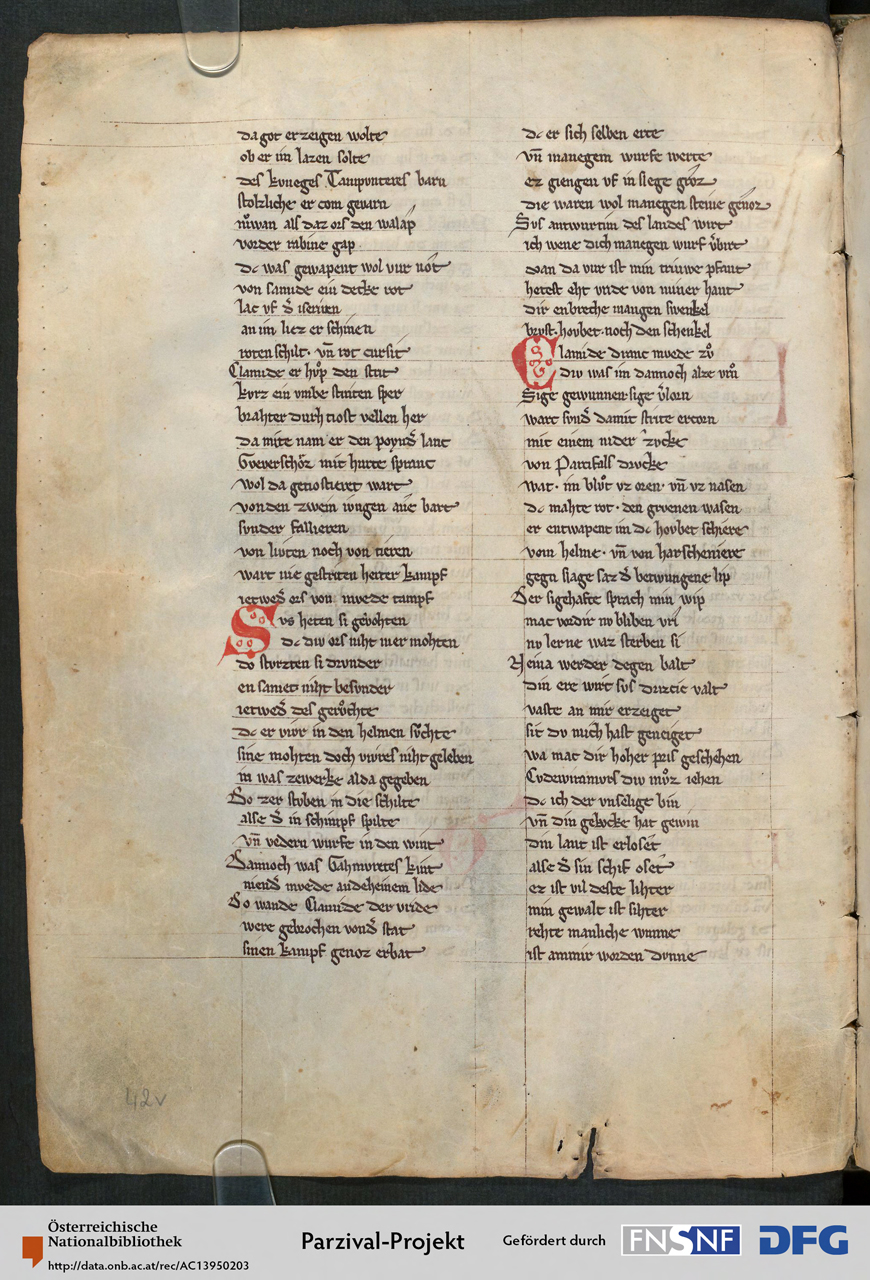 da got erzeigen wolte
ob er im lazen solte
des kvneges Tampunteres barn
stolzliche er com gevarn
nv̊wan als daz ors den walap
vorder rabine gap
dc was gewapent wol vur not
von samide ein decke rot
lac vf d̾ iserinen
an im liez er schinen
roten schilt· vn̄ rot cursit
Clamide er hv̊p den strit
kvrz ein vmbe stuiten sper
brahter durh tiost vellen her
Da mite nam er den poynd̾ lanc
Gveverschorz mit hurte spranc
wol da getiostieret wart
von den zwein iungen ane bart
svnder fallieren
von livten noch von tieren
wart nie gestriten herter kampf
ietwed̾ ors von mvede tampf
Svs heten si gevohten
dc div ors niht mer mohten
do stvrzten si drvnder
en samet niht besvnder
ietwed̾ des gerv̊chte
dc er vivr in den helmen sv̊chte
sine mohten doch vivres niht geleben
in was zewerke alda gegeben
Do zer stvben in die schilte
alse d̾ in schimpf spilte
vn̄ vedern wurfe in den wint
Dannoch was Gahmvretes kint
niend̾ mvede andeheinem lide
Do wande Clamide der vride
were gebrochen vond̾ stat
sinen kampf genoz erbat
dc er sich selben erte
vn̄ manegem wurfe werte
ez giengen vf in slege groz
die waren wol manegen steine genoz
Svs antwurtim des landes wirt
ich wene dich manegen wurf v̾birt
doan da vur ist min triuwe pfant
hetest eht vride von miner hant
dir enbreche mangen swenkel
brvst· hovbet· noch den schenkel
Clamide dranc mvede zv̊
div was im dannoch alze vrů
Sige gewunnen· sige v̾lorn
wart svnd̾ damit strite ercorn
mit einem nider zvcke
von Parcifals drvcke
wat· im blv̊t vz oren· vn̄ vz nasen
dc mahte rot· den grvenen wasen
er entwapent im dc hovbet schiere
vom helme· vn̄ von harscheniere
gegn slage saz d̾ betwungene lip
Der sigehafte sprach min wip
mac vordir nv bliben vri
nv lerne waz sterben si
Neina werder degen balt
din ere wirt svs drizcic valt
vaste an mir erzeiget
sit dv mich hast geneiget
wa mac dir hoher pris geschehen
Cvdewiramvrs div mv̊z iehen
dc ich der vnselige bin
vn̄ din gelvcke hat gewin
din lant ist erloset
alse d̾ sin schif oset
ez ist vil deste lihter
min gewalt ist sihter
rehte manliche wunne
ist ammir worden dvnne
42v
Österreichische
Nationalbibliothek
http://data.onb.ac.at/rec/AC13950203
Parzival-Projekt
Gefördert durch
FNSNF
DFG